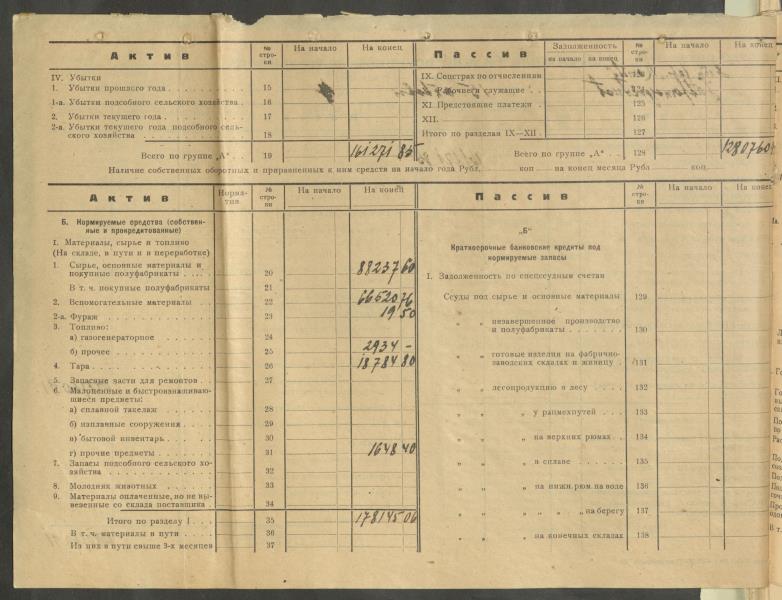 Актив № стро-ки На начало На конец
IV. Убытки
1. Убытки прошлого года 15
1-а. Убытки подсобного сельского хозяйства 16
2. Убытки текущего года 17
2-а. Убытки текущего года подсобного сель-
ского хозяйства 18
Всего по группе „А“ 19 161271 85
Пассив Задолженность на начало на конец № стро-ки На начало На конец
IX. Соцстрах по отчислениям
X. Рабочие и служащие
XI. Предстоящие платежи 125
XII. 126
Итого по разделам IX—XII 127
Всего по группе „А“ 128 1280760
Наличие собственных оборотных и приравненных к ним средств на начало года Рубл. коп на конец месяца Рубл коп.
Актив Норма-тив № стро-ки На начало На конец
Б. Нормируемые средства (собствен-
ные и прокредитованные)
I. Материалы, сырье и топливо
(На складе, в пути и в переработке)
1. Сырье, основные материалы и
покупные полуфабрикаты 20 88237 60
В т. ч. покупные полуфабрикаты 21
2. Вспомогательные материалы 22 66520 76
2-а. Фураж 23 19 50
3. Топливо:
а) газогенераторное 24
б) прочее 25 2934 -
4. Тара 26 18784 80
5. Запасные части для ремонтов 27
6. Малоценные и быстроизнашиваю-
щиеся предметы:
а) сплавной такелаж 28
б) наплавные сооружения 29
в) бытовой инвентарь 30
г) прочие предметы 31 1648 40
7. Запасы подсобного сельского хо-
зяйства 32
8. Молодняк животных 33
9. Материалы оплаченные, но не вы-
везенные со склада поставщика 34
Итого по разделу I 35 178145 06
В т. ч. материалы в пути 36
Из них в пути свыше 3-х месяцев 37
Пассив № стро-ки На начало На конец
„Б“
Краткосрочные банковские кредиты под
нормируемые запасы
I. Задолженность по спецссудным счетам
Ссуды под сырье и основные материалы 129
„ „ незавершенное производство
и полуфабрикаты 130
„ „ готовые изделия на фабрично-
заводских складах и живицу 131
„ „ лесопродукцию в лесу 132
„ „ „ у рапмехпутей 133
„ „ „ на верхних рюмах 134
„ „ „ в сплаве 135
„ „ „ на нижн. рюм. на воде 136
„ „ „ „ „ на берегу 137
„ „ „ на конечных складах 138